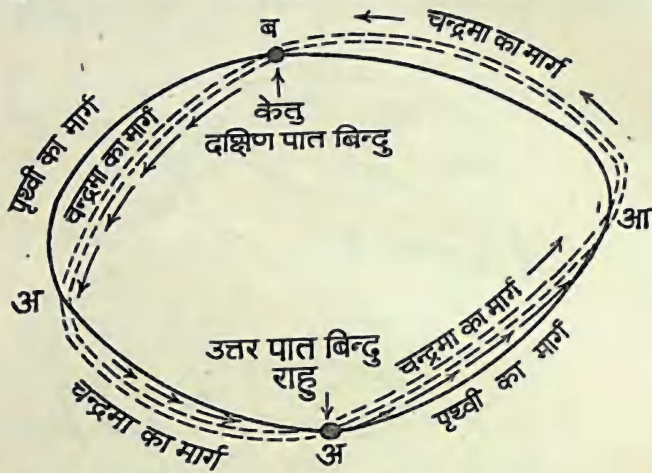 ब
चन्द्रमा का मार्ग
केतु
दक्षिण पात बिन्दु
पृथ्वी का मार्ग
चन्द्रमा का मार्ग
आ
अ
उत्तर पात बिन्दु
राहु
चन्द्रमा का मार्ग
पृथ्वी का मार्ग
चन्द्रमा का मार्ग
अ